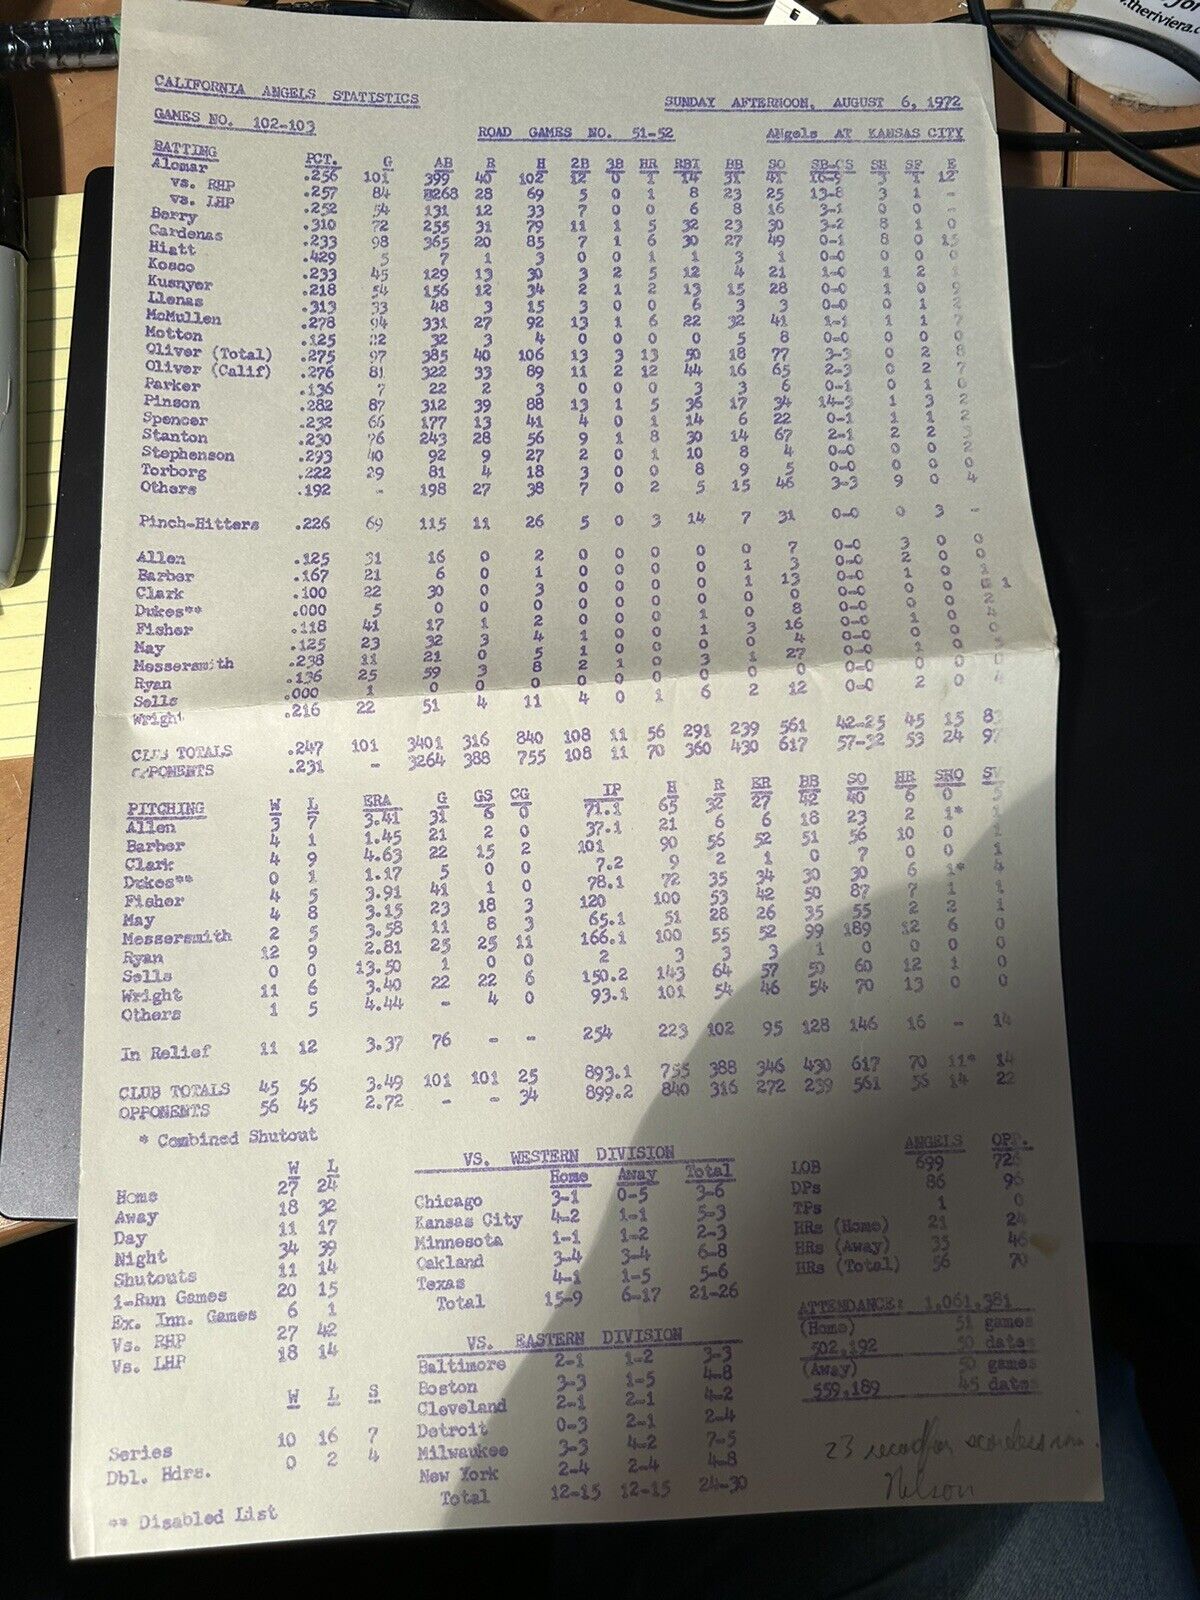 jor
.theriviera.
CALIFORNIA ANGELS STATISTICS SUNDAY AFTERNOON, AUGUST 6, 1972
GAMES NO. 102-103 ROAD GAMES NO. 51-52 ANgels AT KANSAS CITY
BATTING PCT. G AB R H 2B 3B HR RBI BB SO SB-CS SH SF E
Alomar .256 101 399 40 102 12 0 1 14 31 41 16-9 3 1 12
vs. RHP .257 84 268 28 69 5 0 1 8 23 25 13-8 3 1 -
vs. LHP .252 54 131 12 33 7 0 0 6 8 16 3-1 0 0 -
Berry .310 72 255 31 79 11 1 5 32 23 30 3-2 8 1 0
Cardenas .233 98 365 20 85 7 1 6 30 27 49 0-1 8 0 15
Hiatt .429 5 7 1 3 0 0 1 1 3 1 0-0 0 0 0
Kosco .233 45 129 13 30 3 2 5 12 4 21 1-0 1 2 1
Kusnyer .218 54 156 12 34 2 1 2 13 15 28 0-0 1 0 9
Llenas .313 33 48 3 15 3 0 0 6 3 3 0-0 0 1 2
McMullen .278 94 331 27 92 13 1 6 22 32 41 1-1 1 1 7
Motton .125 22 32 3 4 0 0 0 0 5 8 0-0 0 0 0
Oliver (Total) .275 97 385 40 106 13 3 13 50 18 77 3-3 0 2 8
Oliver (Calif) .276 81 322 33 89 11 2 12 44 16 65 2-3 0 2 7
Parker .136 7 22 2 3 0 0 0 3 3 6 0-1 0 1 0
Pinson .282 87 312 39 88 13 1 5 36 17 34 14-3 1 3 2
Spencer .232 66 177 13 41 4 0 1 14 6 22 0-1 1 1 2
Stanton .230 76 243 28 56 9 1 8 30 14 67 2-1 2 2 3
Stephenson .293 40 92 9 27 2 0 1 10 8 4 0-0 0 0 2
Torborg .222 29 81 4 18 3 0 0 8 9 5 0-0 0 0 0
Others .192 - 198 27 38 7 0 2 5 15 46 3-3 9 0 4
Pinch-Hitters .226 69 115 11 26 5 0 3 14 7 31 0-0 0 3 -
Allen .125 31 16 0 2 0 0 0 0 0 7 0-0 3 0 0
Barber .167 21 6 0 1 0 0 0 0 1 3 0-0 2 0 0
Clark .100 22 30 0 3 0 0 0 0 1 13 0-0 1 0 1
Dukes** .000 5 0 0 0 0 0 0 0 0 0 0-0 0 0 1
Fisher .118 41 17 1 2 0 0 0 1 0 8 0-0 0 0 2
May .125 23 32 3 4 1 0 0 1 3 16 0-0 1 0 4
Messersmith .238 11 21 0 5 1 0 0 0 0 4 0-0 0 0 0
Ryan .136 25 59 3 8 2 1 0 3 1 27 0-0 1 0
Sells .000 1 0 0 0 0 0 0 0 0 0 0-0 0 0 0
Wright .216 22 51 4 11 4 0 1 6 2 12 0-0 2 0 4
CLUB TOTALS .247 101 3401 316 840 108 11 56 291 239 561 42-25 45 15
OPPONENTS .231 - 3264 388 755 108 11 70 360 430 617 57-32 53 24 97
PITCHING W L ERA G GS CG IP H R ER BB SO HR SHO SV
Allen 3 7 3.41 31 6 0 71.1 65 32 27 42 40 6 0 5
Barber 4 1 1.45 21 2 0 37.1 21 6 6 18 23 2 1* 1
Clark 4 9 4.63 22 15 2 101 90 56 52 51 56 10 0 1
Dukes** 0 1 1.17 5 0 0 7.2 9 2 1 0 7 0 0 1
Fisher 4 5 3.91 41 1 0 78.1 72 35 34 30 30 6 1* 4
May 4 8 3.15 23 18 3 120 100 53 42 50 87 7 1 1
Messersmith 2 5 3.58 11 8 3 65.1 51 28 26 35 55 2 2 1
Ryan 12 9 2.81 25 25 11 166.1 100 55 52 99 189 12 6 0
Sells 0 0 13.50 1 0 0 2 3 3 3 1 0 0 0 0
Wright 11 6 3.40 22 22 6 150.2 143 64 57 50 60 12 1 0
Others 1 5 4.44 - 4 0 93.1 101 54 46 54 70 13 0 0
In Relief 11 12 3.37 76 - - 254 223 102 95 128 146 16 - 14
CLUB TOTALS 45 56 3.49 101 101 25 893.1 755 388 346 430 617 70 11* 14
OPPONENTS 56 45 2.72 - - 34 899.2 840 316 272 239 561 56 14 22
* Combined Shutout
W L
Home 27 24
Away 18 32
Day 11 17
Night 34 39
Shutouts 11 14
1-Run Games 20 15
Ex. Inn. Games 6 1
Vs. RHP 27 42
Vs. LHP 18 14
W L S
Series 10 16 7
Dbl. Hdrs. 0 2 4
** Disabled List
VS. WESTERN DIVISION
Home Away Total
Chicago 3-1 0-5 3-6
Kansas City 4-2 1-1 5-3
Minnesota 1-1 1-2 2-3
Oakland 3-4 3-4 6-8
Texas 4-1 1-5 5-6
Total 15-9 6-17 21-26
VS. EASTERN DIVISION
Baltimore 2-1 1-2 3-3
Boston 3-3 1-5 4-8
Cleveland 2-1 2-1 4-2
Detroit 0-3 2-1 2-4
Milwaukee 3-3 4-2 7-5
New York 2-4 2-4 4-8
Total 12-15 12-15 24-30
ANGELS OPP.
LOB 699 726
DPs 86 96
TPs 1 0
HRs (Home) 21 24
HRs (Away) 35 46
HRs (Total) 56 70
ATTENDANCE: 1,061,381
(Home) 51 games
502,192 50 dates
(Away) 50 games
559,189 45 dates
23 record for scoreless inn.
Nelson